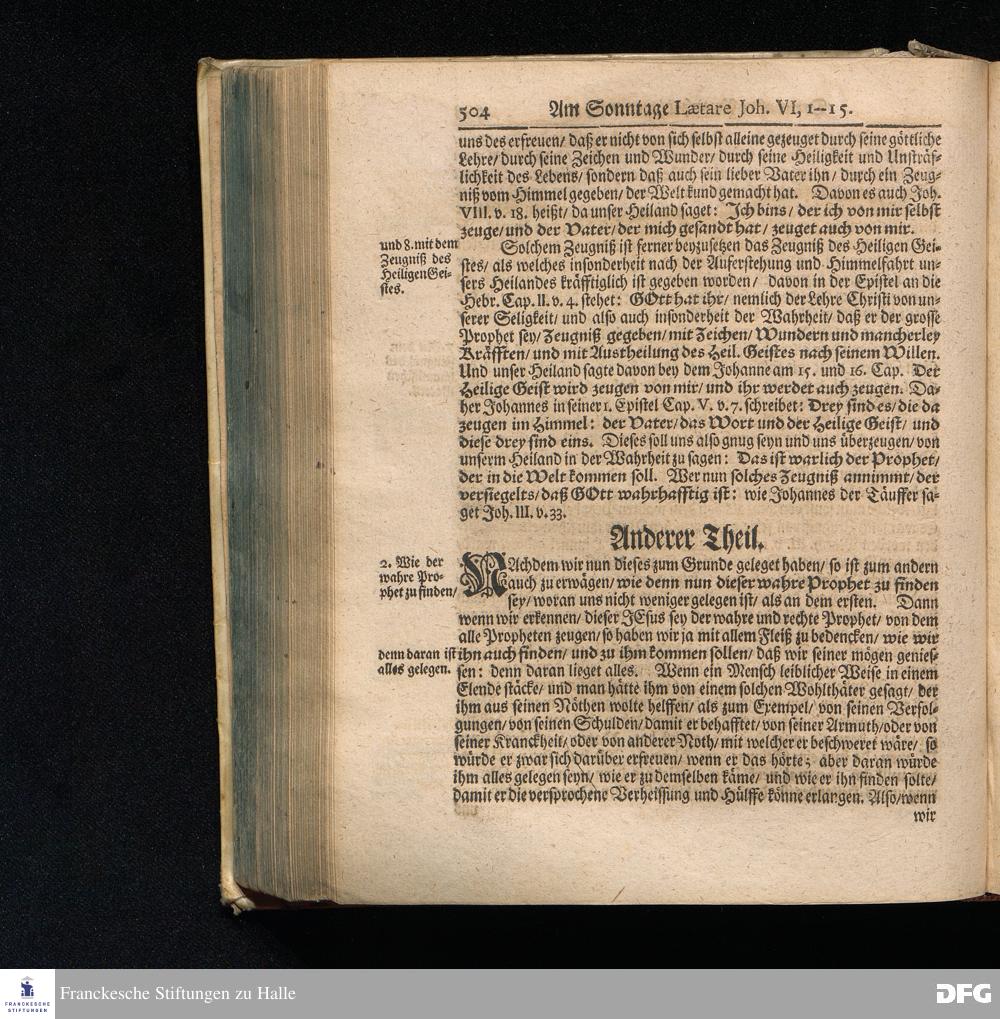 504 Am Sonntage Lætare Joh. VI, 1--15.
uns des erfreuen/ daß er nicht von sich selbst alleine gezeuget durch seine göttliche
Lehre/ durch seine Zeichen und Wunder/ durch seine Heiligkeit und Unsträf-
lichkeit des Lebens/ sondern daß auch sein lieber Vater ihn/ durch ein Zeug-
niß vom Himmel gegeben/ der Welt kund gemacht hat. Davon es auch Joh.
VIII. v. 18. heißt/ da unser Heiland saget: Ich bins/ der ich von mir selbst
zeuge/ und der Vater/ der mich gesandt hat/ zeuget auch von mir.
und 8. mit dem
Zeugniß des
Heiligen Gei-
stes.
Solchem Zeugniß ist ferner beyzusetzen das Zeugniß des Heiligen Gei-
stes/ als welches insonderheit nach der Auferstehung und Himmelfahrt un-
sers Heilandes kräfftiglich ist gegeben worden/ davon in der Epistel an die
Hebr. Cap. II. v. 4. stehet: GOtt hat ihr/ nemlich der Lehre Christi von un-
serer Seligkeit/ und also auch insonderheit der Wahrheit/ daß er der grosse
Prophet sey/ Zeugniß gegeben/ mit Zeichen/ Wundern und mancherley
Kräfften/ und mit Austheilung des Heil. Geistes nach seinem Willen.
Und unser Heiland sagte davon bey dem Johanne am 15. und 16. Cap. Der
Heilige Geist wird zeugen von mir/ und ihr werdet auch zeugen. Da-
her Johannes in seiner 1. Epistel Cap. V. v. 7. schreibet: Drey sind es/ die da
zeugen im Himmel: der Vater/ das Wort und der Heilige Geist/ und
diese drey sind eins. Dieses soll uns also gnug seyn und uns überzeugen/ von
unserm Heiland in der Wahrheit zu sagen: Das ist warlich der Prophet/
der in die Welt kommen soll. Wer nun solches Zeugniß annimmt/ der
versiegelts/ daß GOtt wahrhafftig ist: wie Johannes der Täuffer sa-
get Joh. III. v. 33.
Anderer Theil.
2. Wie der
wahre Pro-
phet zu finden/
NAchdem wir nun dieses zum Grunde geleget haben/ so ist zum andern
auch zu erwägen/ wie denn nun dieser wahre Prophet zu finden
sey/ woran uns nicht weniger gelegen ist/ als an dem ersten. Dann
wenn wir erkennen/ dieser JEsus sey der wahre und rechte Prophet/ von dem
alle Propheten zeugen/ so haben wir ja mit allem Fleiß zu bedencken/ wie wir
denn daran ist
alles gelegen.
ihn auch finden/ und zu ihm kommen sollen/ daß wir seiner mögen genies-
sen: denn daran lieget alles. Wenn ein Mensch leiblicher Weise in einem
Elende stäcke/ und man hätte ihm von einem solchen Wohlthäter gesagt/ der
ihm aus seinen Nöthen wolte helffen/ als zum Exempel/ von seinen Verfol-
gungen/ von seinen Schulden/ damit er behafftet/ von seiner Armuth/ oder von
seiner Kranckheit/ oder von anderer Noth/ mit welcher er beschweret wäre/ so
würde er zwar sich darüber erfreuen/ wenn er das hörte; aber daran würde
ihm alles gelegen seyn/ wie er zu demselben käme/ und wie er ihn finden solte/
damit er die versprochene Verheissung und Hülffe könne erlangen. Also/ wenn
wir
FRANCKESCHE
STIFTUNGEN
Franckesche Stiftungen zu Halle
DFG